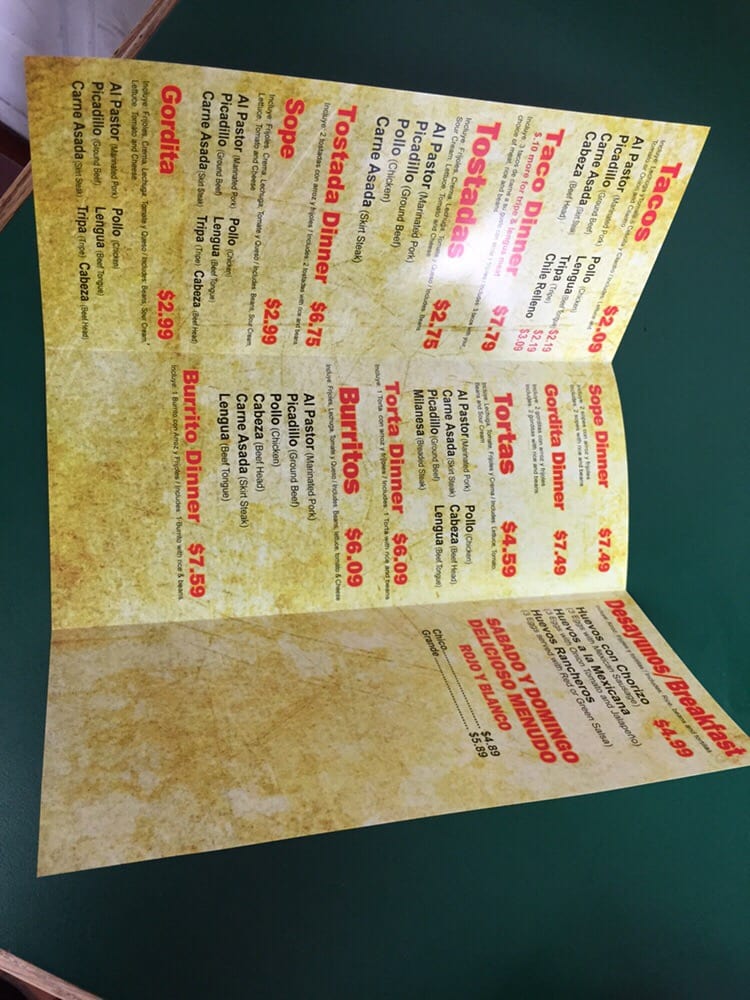 Tacos $2.09
Al Pastor
Picadillo (Ground Beef)
Carne Asada (Skirt Steak)
Cabeza (Beef Head)
Pollo (Chicken)
Lengua (Beef Tongue) $2.19
Tripa (Tripe) $2.19
Chile Relleno $3.09
Taco Dinner $7.79
$.10 more for tripe & lengua meat
Tostadas $2.75
Incluye: Frijoles, Crema, Lechuga, Tomate y Queso / Includes: Beans,
Sour Cream, Lettuce, Tomato and Cheese
Al Pastor (Marinated Pork)
Picadillo (Ground Beef)
Pollo (Chicken)
Carne Asada (Skirt Steak)
Tostada Dinner $6.75
Incluye: 2 tostadas con arroz y frijoles / Includes: 2 tostadas with rice and beans
Sope $2.99
Incluye: Frijoles, Crema, Lechuga, Tomate y Queso / Includes: Beans, Sour Cream,
Lettuce, Tomato and Cheese
Al Pastor (Marinated Pork) Pollo (Chicken)
Picadillo (Ground Beef) Lengua (Beef Tongue)
Carne Asada (Skirt Steak) Tripa (Tripe) Cabeza (Beef Head)
Gordita $2.99
Incluye: Frijoles, Crema, Lechuga, Tomate y Queso / Includes: Beans, Sour Cream,
Lettuce, Tomato and Cheese
Al Pastor (Marinated Pork) Pollo (Chicken)
Picadillo (Ground Beef) Lengua (Beef Tongue)
Carne Asada (Skirt Steak) Tripa (Tripe) Cabeza (Beef Head)
Sope Dinner $7.49
Incluye: 2 sopes con arroz y frijoles
Includes: 2 sopes with rice and beans
Gordita Dinner $7.49
Incluye: 2 gorditas con arroz y frijoles
Includes: 2 gorditas with rice and beans
Tortas $4.59
Incluye: Lechuga, Tomate, Frijoles y Crema / Includes: Lettuce, Tomato,
Beans and Sour Cream
Al Pastor (Marinated Pork) Pollo (Chicken)
Carne Asada (Skirt Steak) Cabeza (Beef Head)
Picadillo (Ground Beef) Lengua (Beef Tongue)
Milanesa (Breaded Steak)
Torta Dinner $6.09
Incluye: 1 Torta con arroz y frijoles / Includes: 1 Torta with rice and beans
Burritos $6.09
Incluye: Frijoles, Lechuga, Tomate y Queso / Includes: Beans, lettuce, tomato & Cheese
Al Pastor (Marinated Pork)
Picadillo (Ground Beef)
Pollo (Chicken)
Cabeza (Beef Head)
Carne Asada (Skirt Steak)
Lengua (Beef Tongue)
Burrito Dinner $7.59
Incluye: 1 Burrito con Arroz y Frijoles / Includes: 1 Burrito with rice & beans
Desayunos/Breakfast
Incluye: arroz, frijoles y tortillas / Includes: Rice, beans and tortillas
$4.99
Huevos con Chorizo
(3 Eggs with Mexican Sausage)
Huevos a la Mexicana
(3 Eggs with Onion Tomato and Jalapeño)
Huevos Rancheros
(3 Eggs served with Red or Green Salsa)
SABADO Y DOMINGO
DELICIOSO MENUDO
ROJO Y BLANCO
Chico $4.89
Grande $5.89